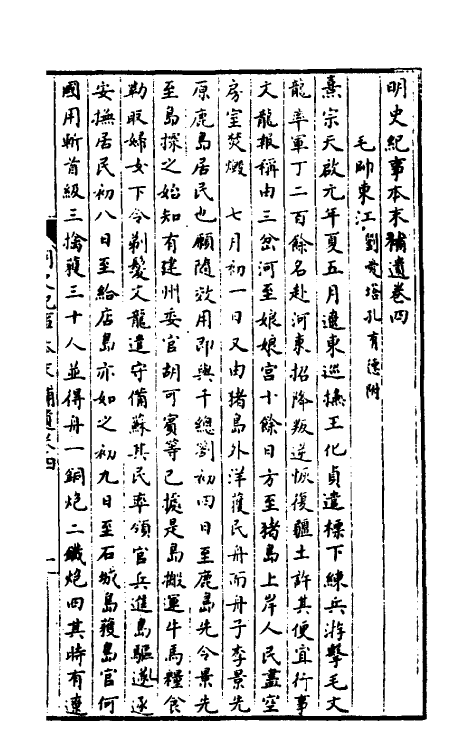 明史紀事本末補遺卷四
毛帥東江 劉愛塔孔有德附
熹宗天啟元年夏五月遼東巡撫王化貞遣標下練兵游擊毛文
龍率軍丁二百餘名赴河東招降叛逆恢復疆土許其便宜行事
文龍報稱由三岔河至娘娘宮十餘日方至猪島上岸人民盡空
房室焚燬 七月初一日又由猪島外洋獲民舟而舟子李景先
原鹿島居民也願隨效用即與千總劉初四日至鹿島先令景先
至島探之始知有建州委官胡可賓等已據是島搬運牛馬糧食
勒取婦女下令剃髮文龍遣守備蘇其民率領官兵進島驅逐逐
安撫居民初八日至給店島亦如之初九日至石城島獲島官何
國用斬首級三擒獲三十人並得舟一銅炮二鐵炮四其時有遼
明史紀事本末補遺卷四
一